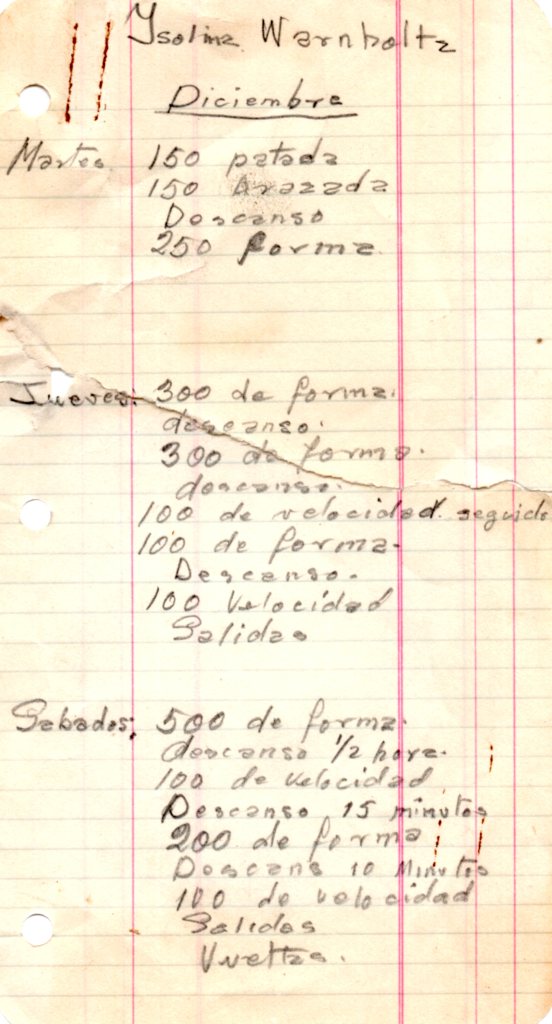 Ysolina Warnholtz
Diciembre
Martes 150 patada
150 brazada
Descanso
250 forma
Jueves: 300 de forma.
descanso.
300 de forma.
descanso.
100 de velocidad seguido
100 de forma.
Descanso.
100 Velocidad
Salidas
Sabados; 500 de forma.
descanso 1/2 hora.
100 de velocidad
Descanso 15 minutos
200 de forma
Descans 10 Minutos
100 de velocidad
Salidas
Vueltas.